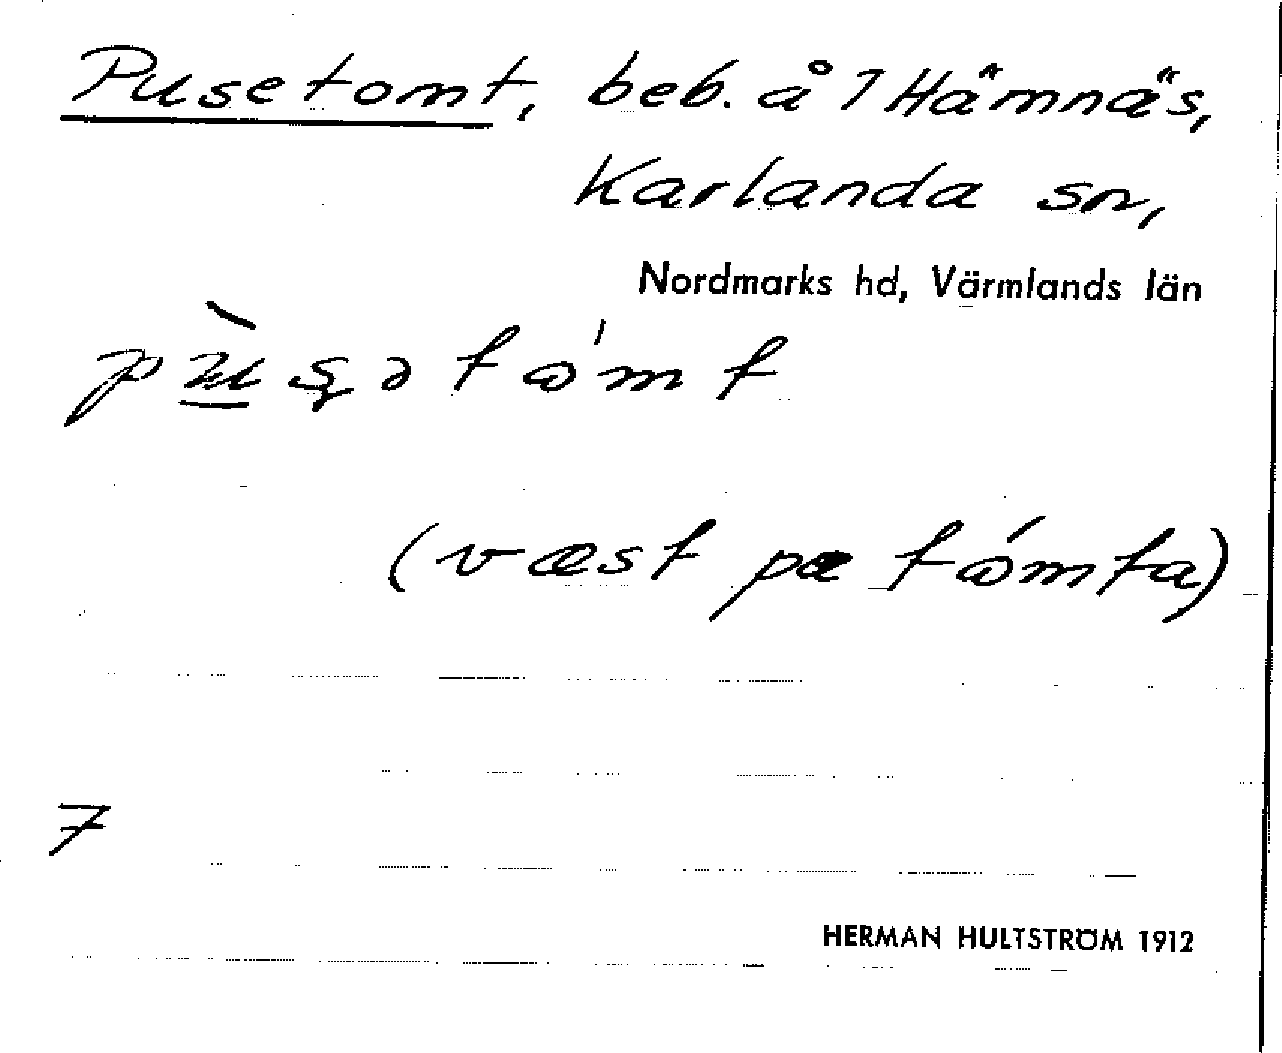 Pusetomt, beb. å 7 Hämnäs,
Karlanda sn,
Nordmarks hd, Värmlands län
pùsətómt
(væst pæ tómta)
7
HERMAN HULTSTRÖM 1912